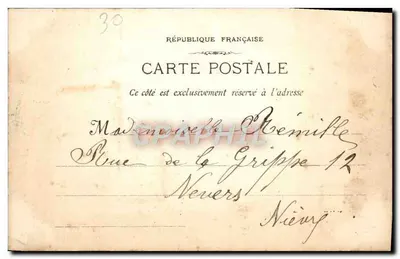 30
RÉPUBLIQUE FRANÇAISE
CARTE POSTALE
Ce côté est exclusivement réservé à l'adresse
Mademoiselle Rémille
Rue de la Grippe 12
Nevers
Nièvre